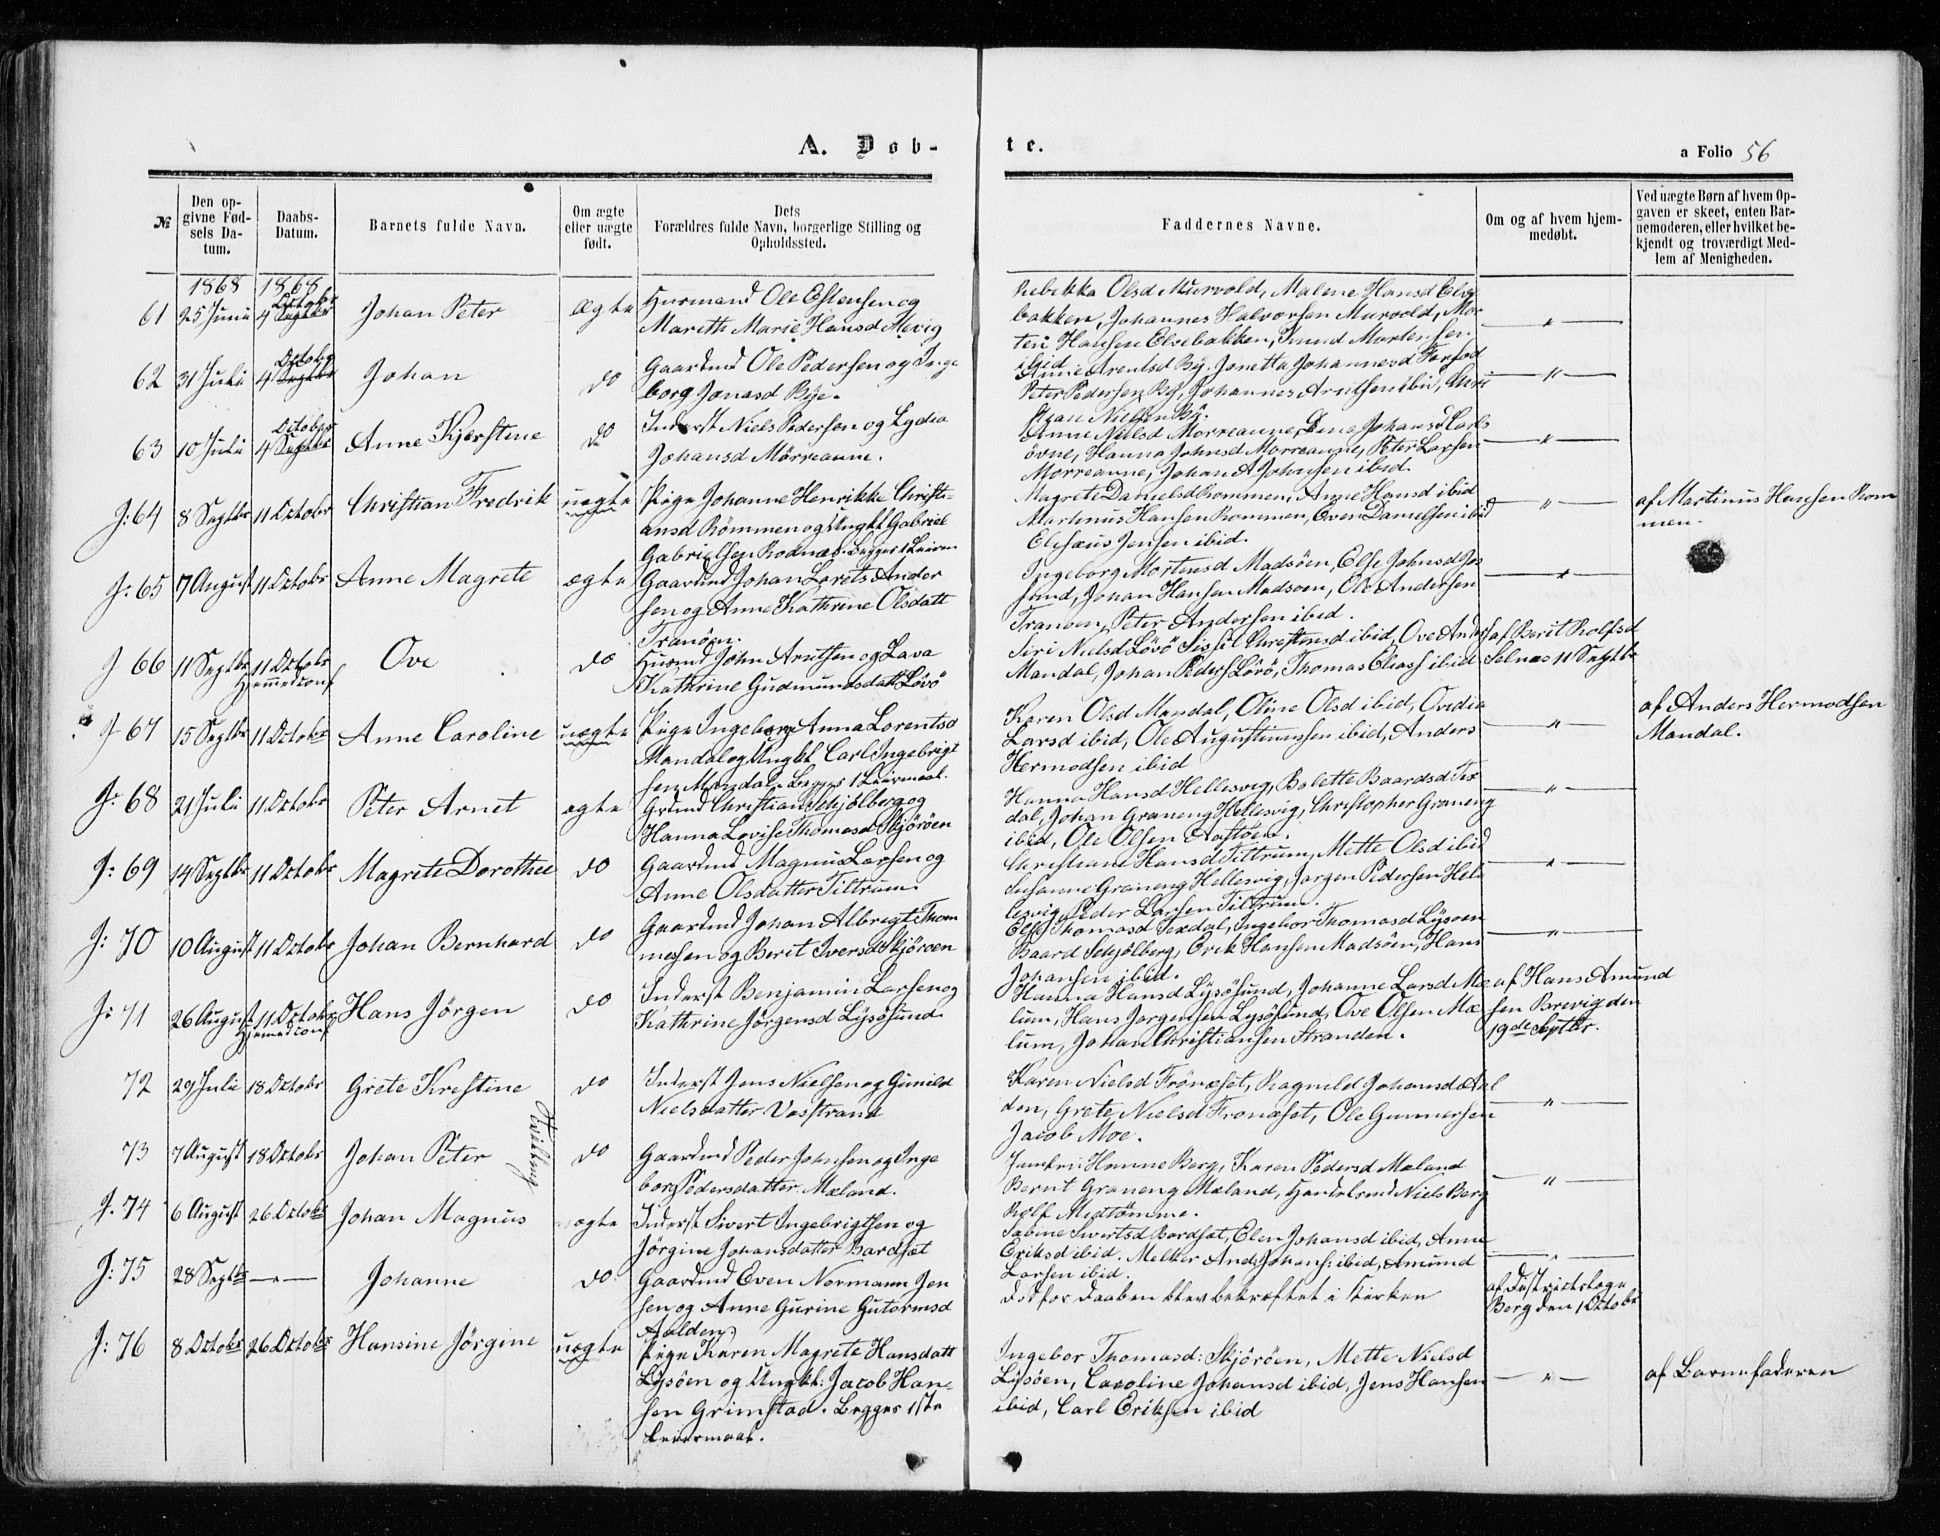 A. Døb-
te.
a Folio 56
№
Den op-
givne Fød-
sels Da-
tum.
Daabs-
Datum.
Barnets fulde Navn.
Om ægte
eller uægte
født.
Dets
Forældres fulde Navn, borgerlige Stilling og
Opholdssted.
Faddernes Navne.
Om og af hvem hjem-
medøbt.
Ved uægte Børn af hvem Op-
gaven er skeet, enten Bar-
nemoderen, eller hvilket be-
kjendt og troværdigt Med-
lem af Menigheden.
1868 1868
61 25 Juni 4 Septbr Octobr Johan Peter Ægte
Huusmand Ole Estensen og
Mareth Marie Hansd Mevig
Rebekka Olsd Murvold, Malene Hansd Else
bakken, Johannes Halvorsen Murvold, Mor
ten Hansen Elsebakken, Knud Mortensen
ibid
62 31 Juli 4 Septbr Octobr Johan do
Gaardmd Ole Pedersen og Inge
borg Jonasd Bye.
Anne Arentsd By, Jonetta Johannesd
Peter Pedersen By, Johannes Arntsen ibid, Chri
stian Nielsen By.
63 10 Juli 4 Septbr Octobr Anne Kjerstine do
Inderst Niels Pedersen og Lydia
Johansd Mörreaune.
Anne Nielsd Morreaune, Lena Johansd Carls
övne, Hanna Johnsd Morreaune, Peter Larsen
Morreaune, Johan A Johnsen ibid.
J: 64 8 Septbr 11 Octobr Christian Fredrik uægte
Pige Johanne Henrikke Christi-
ansd Römmen og Ungkl Gabriel
Gabrielsen Rodnæs. Begges 1 Leierm
Magrete Danielsd Rommen, Anne Hansd ibid
Martinus Hansen Rommen, Even Danielsen ibid
Elisæus Jensen ibid.
af Martinus Hansen Rom
men.
J: 65 7 August 11 Octobr Anne Magrete ægte
Gaardmd Johan Lorets Ander
sen og Anne Kathrine Olsdatt
Tranöen.
Ingeborg Mortensd Madsöen, Else Johnsd Jos
sund, Johan Hansen Madsoen, Ole Andersen
Tranoen, Peter Andersen ibid.
J 66 11 Septbr 11 Octobr Ove do
Hjemmed conf
Huusmd John Arntsen og Lava
Kathrine Gudmundsdatt Lövö
Siri Nielsd Lövö Sissel Christensd ibid, Ove Anders
Mandal, Johan Peders Lövö, Thomas Eliass ibid
af Berit Rolfsd
Selnæs 11 Septbr
J 67 15 Septbr 11 Octobr Anne Caroline uægte
Pige Ingeborg Anna Lorentsd
Mandal og Ungkl Carl Ingebrigt
sen Mandal. Begges 1 Leiermaal.
Karen Olsd Mandal, Oline Olsd ibid, Ovedia
Larsd ibid, Ole Augustinussen ibid, Anders
Hermodsen ibid
af Anders Hermodsen
Mandal.
J: 68 21 Juli 11 Octobr Peter Arnet ægte
Grmd Christian Schjölberg og
Hanna Lovise Thomasd Skjöröen
Hanna Hansd Hellesvig, Bolette Baardsd Tex
dal, Johan Graneng Hellesvig, Christopher Graneng
ibid, Ole Olsen Aastöen.
J: 69 14 Septbr 11 Octobr Magrete Dorothee do
Gaardmd Magnus Larsen og
Anne Olsdatter Tiltrum.
Christiane Hansd Tiltrum, Mette Olsd ibid
Susanne Graneng Hellesvig, Jørgen Pedersen Hel
lesvig Peder Larsen Tiltrum.
J: 70 10 August 11 Octobr Johan Bernhard do
Gaardmd Johan Albregt Thom
mesen og Berit Iversd Skjöroen
Else Thomasd Texdal, Ingebor Thomasd Lysoen
Baard Schjölberg, Erik Hansen Madsöen, Hans
Johansen ibid.
J: 71 26 August 11 Octobr Hans Jörgen do
Hjemmed conf
Inderst Benjamin Larsen og
Kathrine Jörgensd Lysösund
Hanna Hansd Lysösund, Johanne Larsd Mæ
lum, Hans Jørgensen Lysösund, Ove Olsen Mæ
lum, Johan Christiansen Stranden.
af Hans Amund
sen Brevig den
19de Septbr.
72 29 Juli 18 Octobr Grete Kristine do
Inderst Jens Nielsen og Gunild
Nielsdatter Vasstrand
Karen Nielsd Frönæset, Ragnild Johansd Aal
den, Grete Nielsd Fronæset, Ole Gunnersen
Jacob Moe.
73 7 August 18 Octobr Johan Peter Tvilling do
Gaardmd Peder Johnsen og Inge
borg Pedersdatter Mæland.
Jomfru: Hanne Berg, Karen Pedersd Mæland
Bernt Graneng Mæland, Handelsmd Niels Berg
Rolf Midtömme.
J. 74 6 August 26 Octobr Johan Magnus ægte
Inderst Sivert Ingebrigtsen og
Jörgine Johansdatter Bardset
Sabine Sivertsd Bardset, Elen Johansd ibid, Anne
Eriksd ibid. Melker And: Johans: ibid, Amund
Larsen ibid.
J: 75 28 Septbr — " — Johanne do
Gaardmd Even Normann Jen
sen og Anne Gurine Gutormsd
Aalden
Död för Daaben blev bekræftet i Kirken
af Districtslæge
Berg den 1 Octobr
J: 76 8 Octobr 26 Octobr Hansine Jörgine uægte
Pige Karen Magrete Hansdatt
Lysöen og Ungkl: Jacob Han-
sen Grimstad. Begges 1ste
Leiermaal.
Ingebor Thomasd: Skjöröen, Mette Nielsd
Lysöen, Caroline Johansd ibid, Jens Hansen
ibid, Carl Eriksen ibid
af Barnefaderen